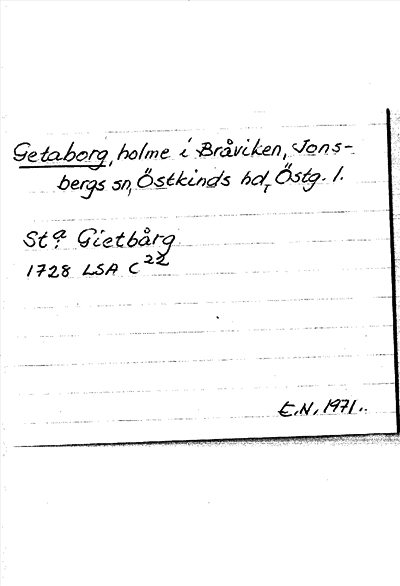 Getaborg, holme i Bråviken, Jons-
bergs sn, Östkinds hd, Östg. l.
Sta. Gietbårg
1728 LSA C22
E.N. 1971..